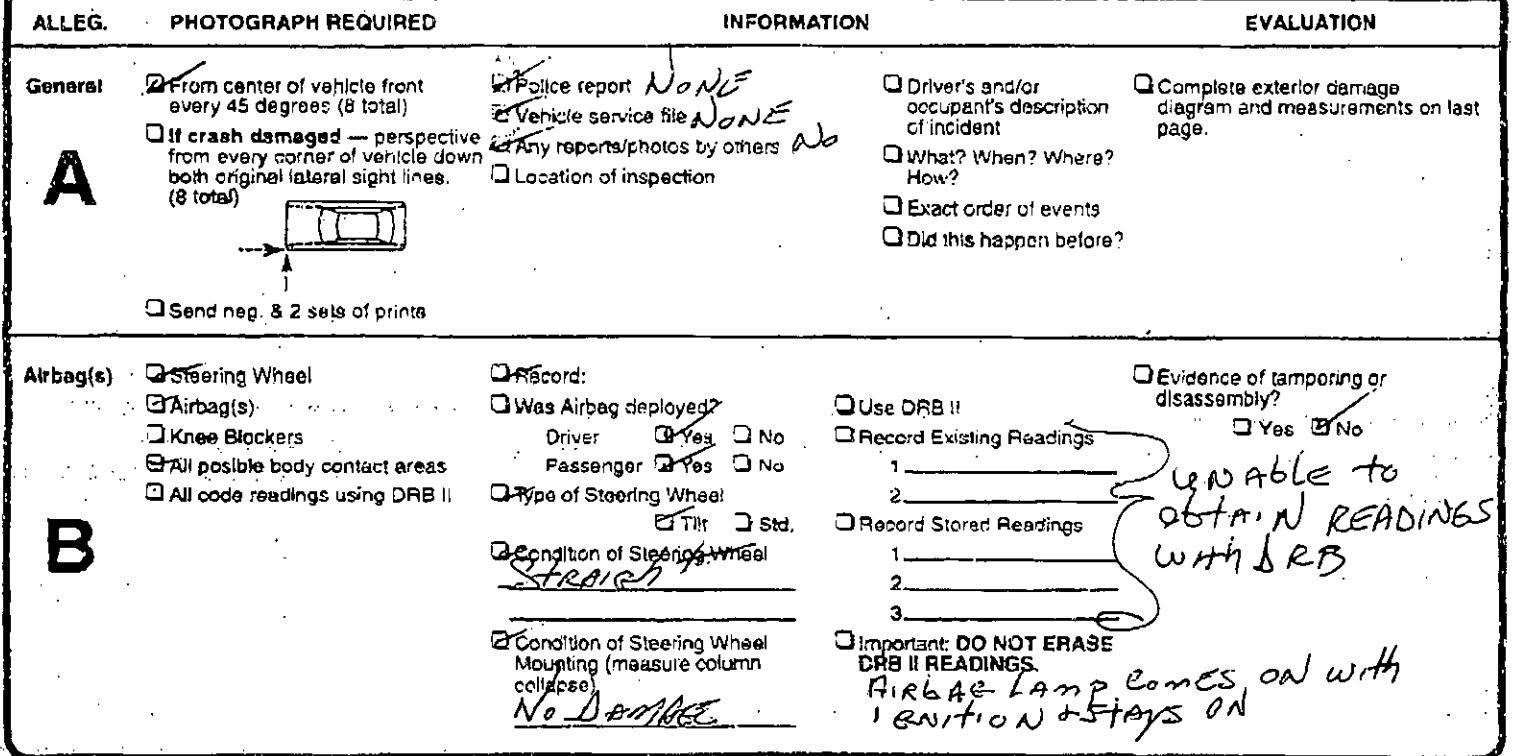 ALLEG. PHOTOGRAPH REQUIRED INFORMATION EVALUATION
General
A
From center of vehicle front
every 45 degrees (8 total)
If crash damaged — perspective
from every corner of vehicle down
both original lateral sight lines.
(8 total)
Send neg. & 2 sets of prints
Police report NONE
Vehicle service file NONE
Any reports/photos by others No
Location of inspection
Driver's and/or
occupant's description
of incident
What? When? Where?
How?
Exact order of events
Did this happen before?
Complete exterior damage
diagram and measurements on last
page.
Airbag(s)
B
Steering Wheel
Airbag(s)
Knee Blockers
All posible body contact areas
All code readings using DRB II
Record:
Was Airbag deployed?
Driver Yes No
Passenger Yes No
Type of Steering Wheel
Tilt Std.
Condition of Steering Wheel
STRAIGHT
Condition of Steering Wheel
Mounting (measure column
collapse)
No DAMAGE
Use DRB II
Record Existing Readings
1
2
Record Stored Readings
1
2
3
Important: DO NOT ERASE
DRB II READINGS.
AIRBAG LAMP COMES ON with
IGNITION & STAYS ON
Evidence of tamporing or
disassembly?
Yes No
UNABLE to
OBTAIN READINGS
With DRB